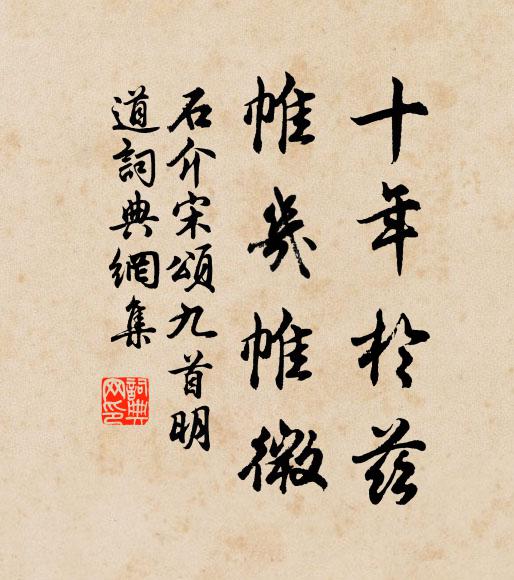 十年於茲
帷幾帷微
石介宋頌九首明
道詞典網集
詞典
网印